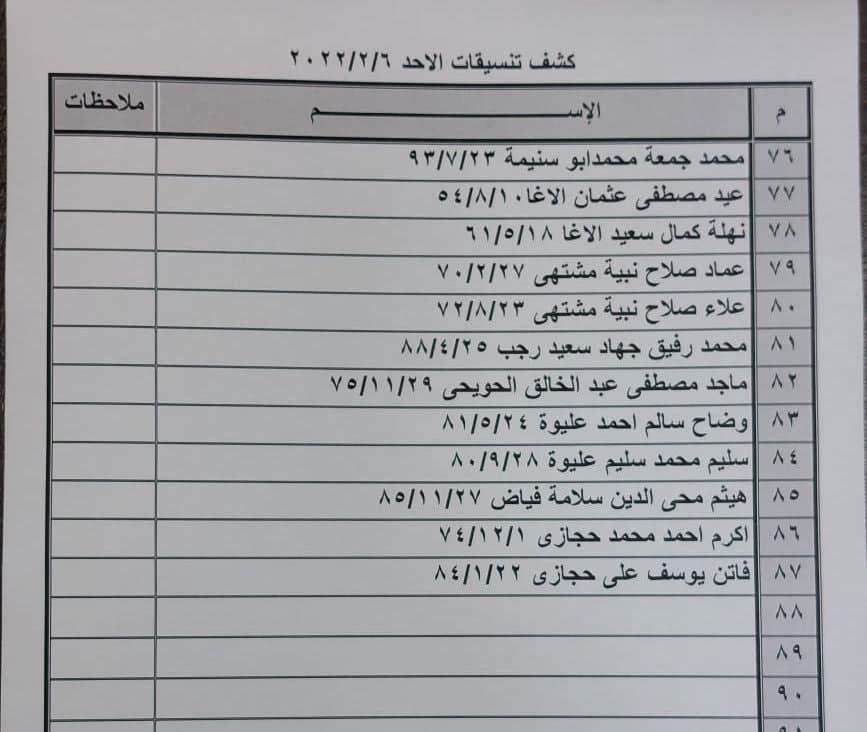 كشف تنسيقات الاحد ٢٠٢٢/٢/٦
م الإســـــــم ملاحظات
٧٦ محمد جمعة محمدابو سنيمة ٩٣/٧/٢٣
٧٧ عيد مصطفى عثمان الاغا٥٤/٨/١٠
٧٨ نهلة كمال سعيد الاغا ٦١/٥/١٨
٧٩ عماد صلاح نبية مشتهى ٧٠/٢/٢٧
٨٠ علاء صلاح نبية مشتهى ٧٢/٨/٢٣
٨١ محمد رفيق جهاد سعيد رجب ٨٨/٤/٢٥
٨٢ ماجد مصطفى عبد الخالق الحويحى ٧٥/١١/٢٩
٨٣ وضاح سالم احمد عليوة ٨١/٥/٢٤
٨٤ سليم محمد سليم عليوة ٨٠/٩/٢٨
٨٥ هيثم محى الدين سلامة فياض ٨٥/١١/٢٧
٨٦ اكرم احمد محمد حجازى ٧٤/١٢/١
٨٧ فاتن يوسف على حجازى ٨٤/١/٢٢
٨٨
٨٩
٩٠